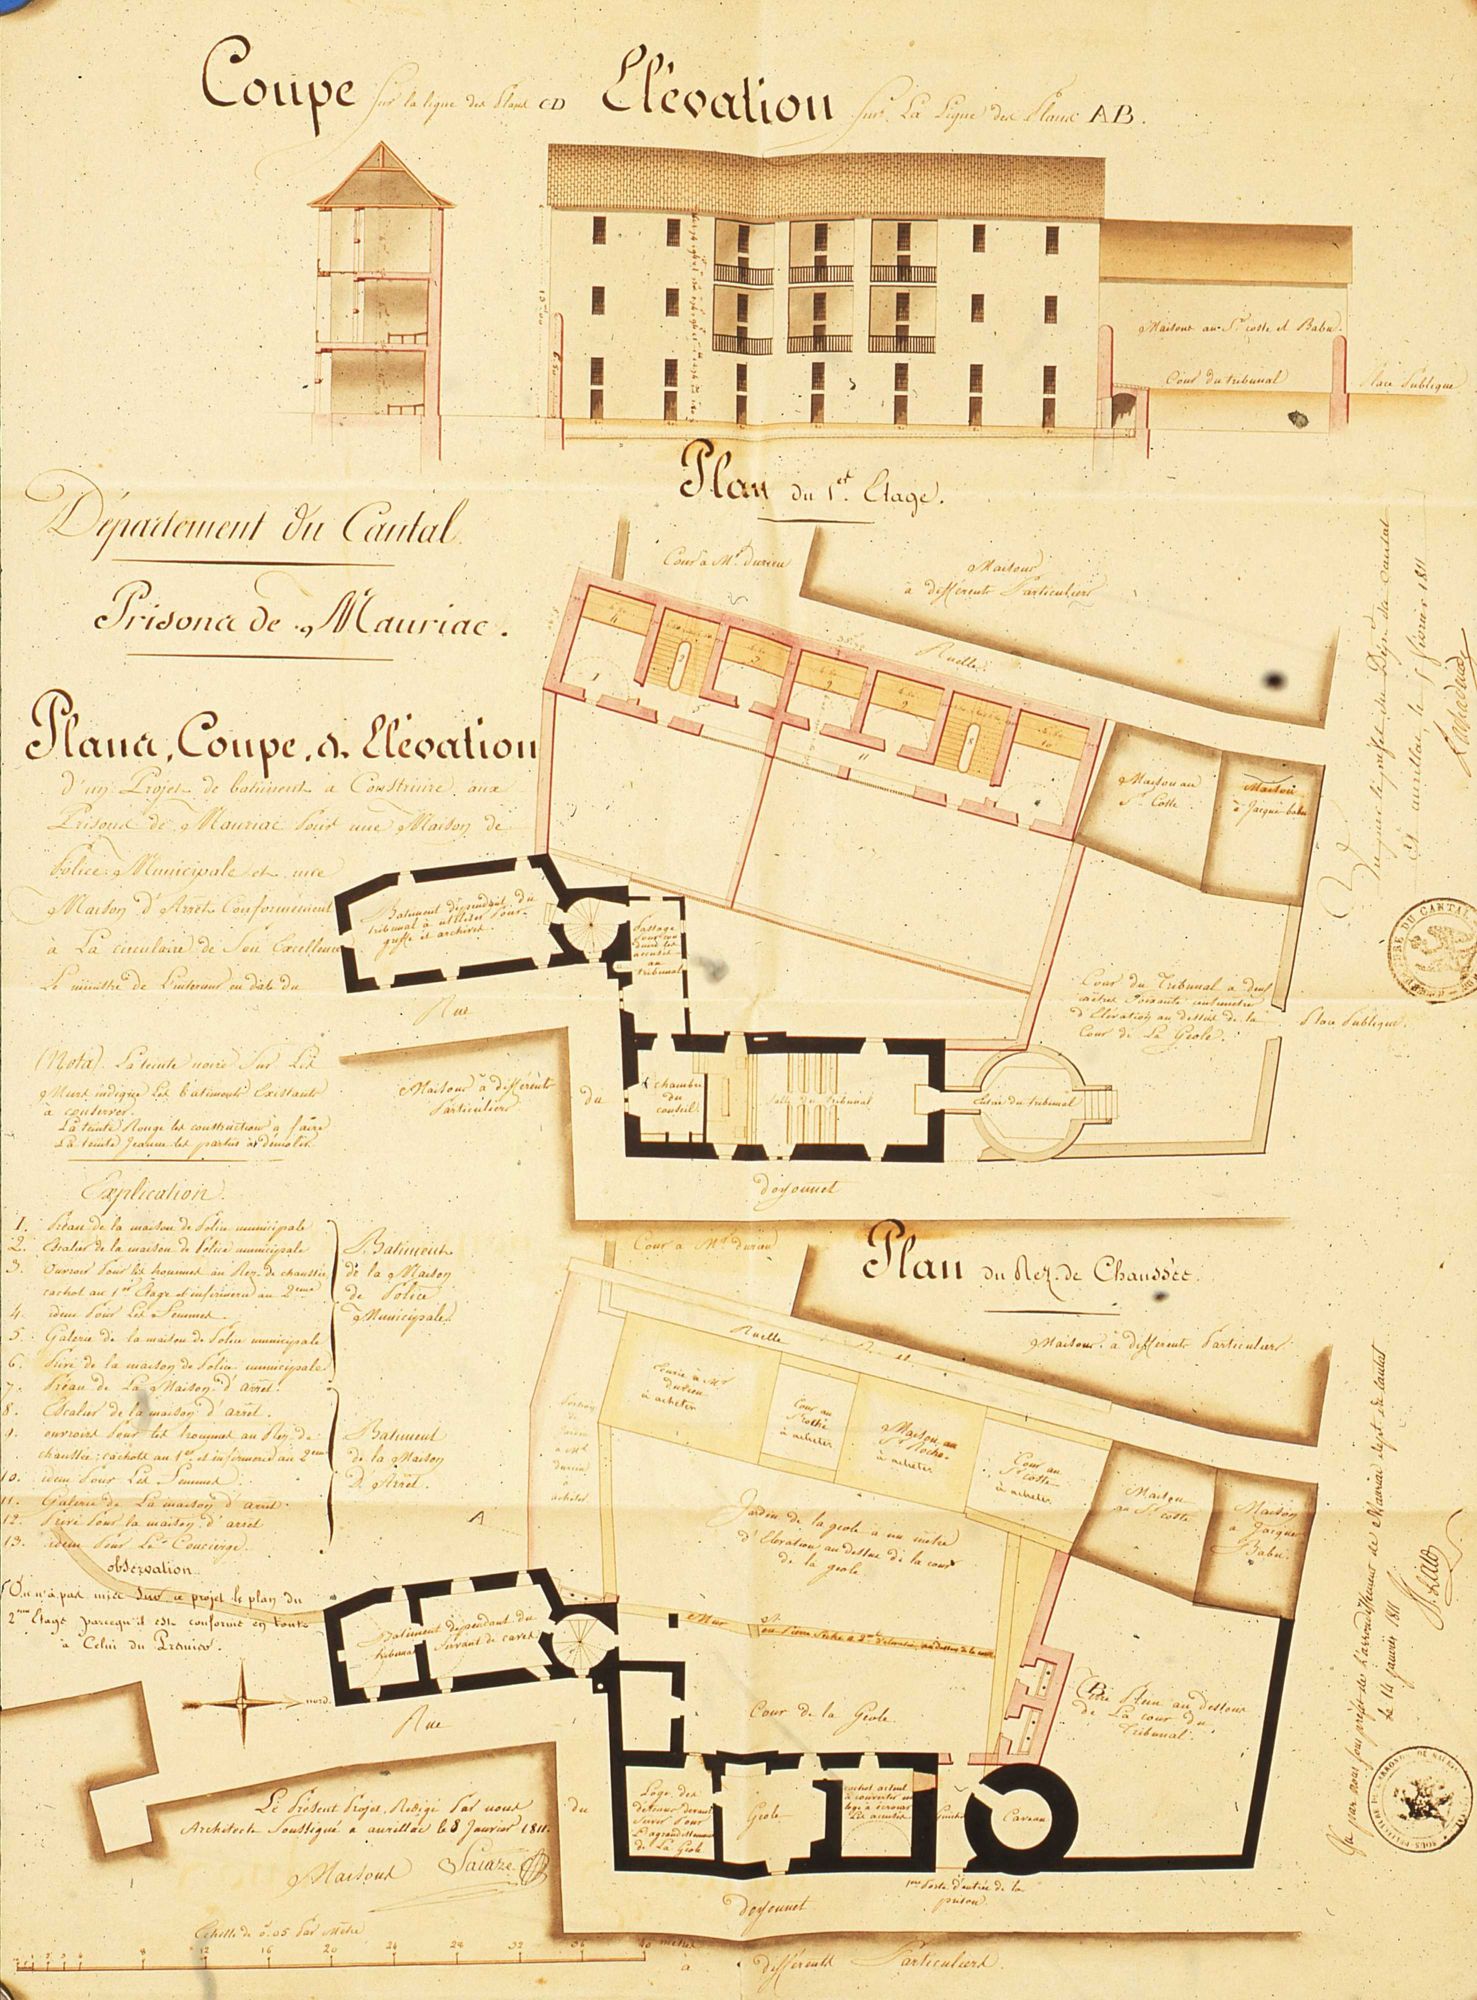 Coupe Sur la ligne des Plans CD Elévation Sur La Ligne des Plans AB.
Maisons au Sr. coste et Babu.
Cour du tribunal
Place Publique
Plan du 1er. Etage.
Département du Cantal.
Prisons de Mauriac.
Plans, Coupe, & Elévation
d'un Projet de batiment à Construire aux
Prisons de Mauriac Pour une Maison de
Police Municipale et une
Maison d'Arrêt Conformément
à La circulaire de Son Excellence
Le ministre de L'interieur en date du
(Nota). La teinte noire Sur Les
Murs indique Les batiments Existants
à conserver.
La teinte Rouge les constructions à faire
La teinte Jeaune les parties à démolir.
Cour à Mr. durieu
Maisons
à différents Particuliers
Ruelle
Maison au
Sr. Coste.
Maison
à Jacques babu
Batiment dépendant du
tribunal à utiliser Pour
greffe et archives.
Passage
Pour con
duire les
accusés
au
tribunal
Rue
Maisons à différents
Particuliers
du
chambre
du
conseil
Salle du tribunal
Entrée du tribunal
Cour du Tribunal à deux
mètres soixante centimètres
d'Elévation au dessus de la
Cour de La Geole.
Place Publique.
doyonnet
Explication.
1. Préau de la maison de Police municipale
2. Escalier de la maison de Police municipale
3. Ouvroir Pour les hommes au Rez de chaussée
cachot au 1er Etage et infirmerie au 2eme
4. idem Pour Les Femmes.
5. Galerie de la maison de Police municipale
6. Privé de la maison de Police municipale
7. Préau de La Maison d'arrêt.
8. Escalier de la maison d'arrêt.
9. ouvroirs Pour les hommes au Rez de
chaussée, cachots au 1er. et infirmerie au 2eme
10. idem Pour Les Femmes.
11. Galerie de La maison d'arrêt.
12. Privé Pour la maison d'arrêt
13. idem Pour Le Concierge.
Batiment
de la Maison
de Police
Municipale.
Batiment
de la Maison
D'Arrêt.
observation.
On n'a pas mis Sur ce projet le plan du
2eme Etage parcequ'il est conforme en tout
à Celui du Premier.
Cour à Mr. durieu
Plan du Rez. de Chaussée.
Maisons à différents Particuliers
Ruelle
Ecurie à Mr
durieu
à acheter
Cour au
Sr
à acheter
Maison au
Sr Roche.
à acheter
Cour au
Sr coste
à acheter
Portion
de
à Mr
durieu
à
acheter
Maison
au Sr coste
Maison
à Jacques
Babu.
Jardin de la geole à un mètre
d'Elevation au dessus de la cour
de la geole
A
Batiment dépendant du
tribunal Servant de caves
Mur en Pierre Seche à 2 mt. d'élévation au dessus de la cour
Cour de la Géole.
B
Terre Plein au dessous
de La cour du
Tribunal.
nord.
Rue
Loge des
détenus devant
Servir Pour
L'agrandissement
de La Geole
Geole
cachot actuel
à convertir en
loge à écrouer
Les accusés
Guichet
Caveau
1ere Porte d'entrée de la
prison.
du
doyonnet
Le Présent Projet Redigé Par nous
Architecte Soussigné à aurillac le 8 Janvier 1811.
Maisons
à différents Particuliers.
Echelle de 0.05 Par Mètre
4 8 12 16 20 24 28 32 36 40 mètres
Vu par nous Sous préfet de l'arrondissement de Mauriac dept. du Cantal
Le 14 janvier 1811
Vu par le préfet du Dépt. du Cantal
à aurillac, le février 1811